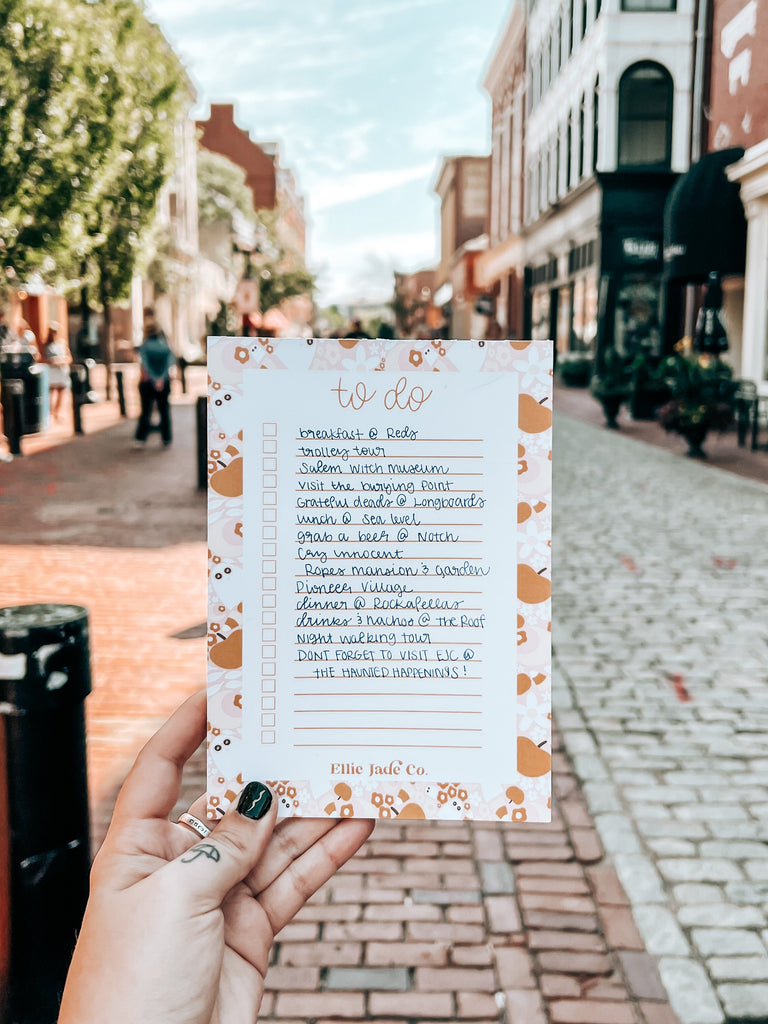 to do
breakfast @ Reds
trolley tour
Salem Witch Museum
visit the burying point
Grateful deads @ Longboards
lunch @ Sea level
grab a beer @ Notch
Cry innocent
Ropes mansion & Garden
Pioneer Village
dinner @ Rockafellas
drinks & nachos @ the Roof
Night walking tour
DONT FORGET TO VISIT EJC @
THE HAUNTED HAPPENINYS!
Ellie Jade Co.